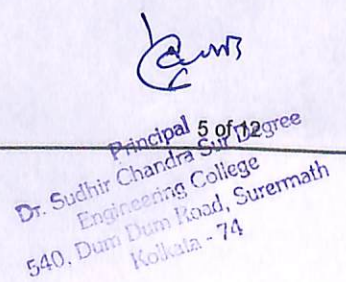 Principal
5 of 12
Dr. Sudhir Chandra Sur Degree
Engineering College
540, Dum Dum Road, Surermath
Kolkata - 74